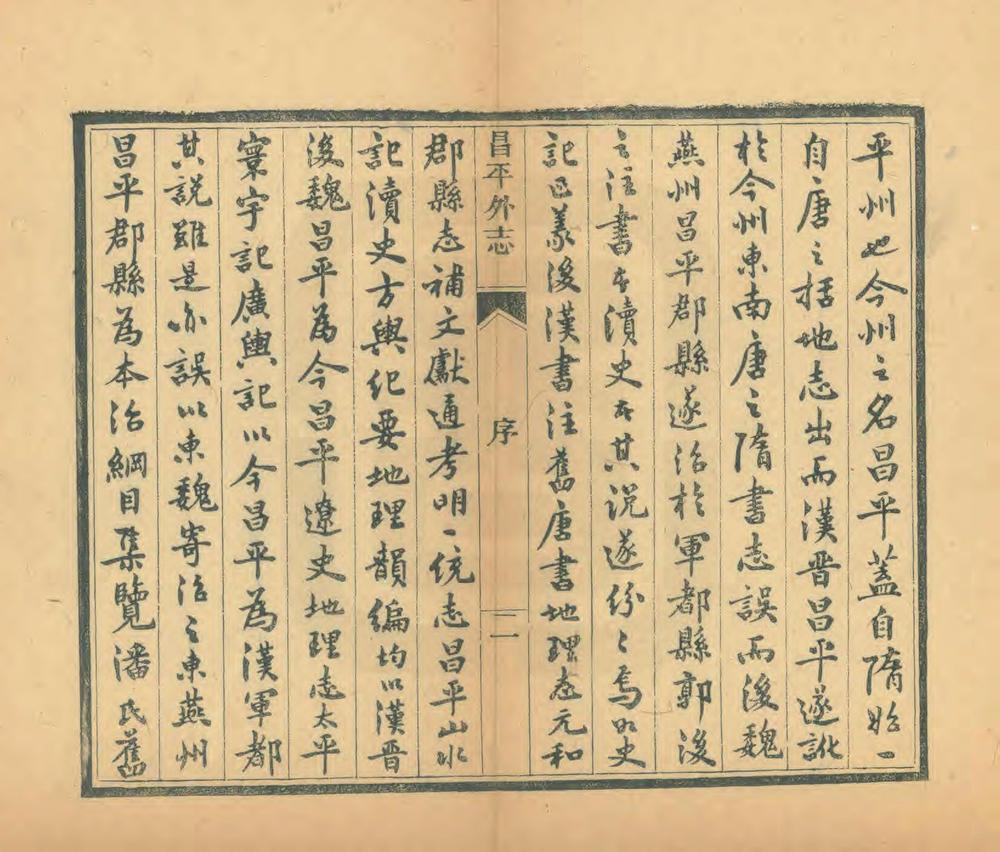 平州也今州之名昌平蓋自隋始一
自唐之括地志出而漢晋昌平遂訛
於今州東南唐之隋書志誤而後魏
燕州昌平郡縣遂治於軍都縣郭後
之注書者讀史者其説遂紛〻焉如史
記正義後漢書注舊唐書地理志元和
昌平外志
序
二
郡縣志補文獻通考明一統志昌平山水
記讀史方輿紀要地理韻編均以漢晋
後魏昌平為今昌平遼史地理志太平
寰宇記廣輿記以今昌平為漢軍都
其說雖是亦誤以東魏寄治之東燕州
昌平郡縣為本治綱目集覽潘氏舊